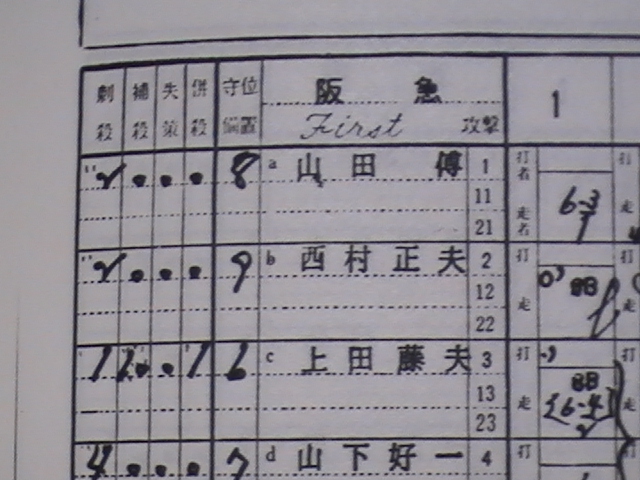 劇殺 補殺 失策 併殺 守位備置 阪急 First 攻撃 1
2 • • • 8 a 山田 傅 1 打者 打
11 6-3
21 走者 走
2 • • • 9 b 西村正夫 2 打 BB 打
12 走 走
22
1 1 • 1 6 c 上田藤夫 3 打 BB 打
13 走 6-4 走
23 2
4 • • • 7 d 山下好一 4 打 打